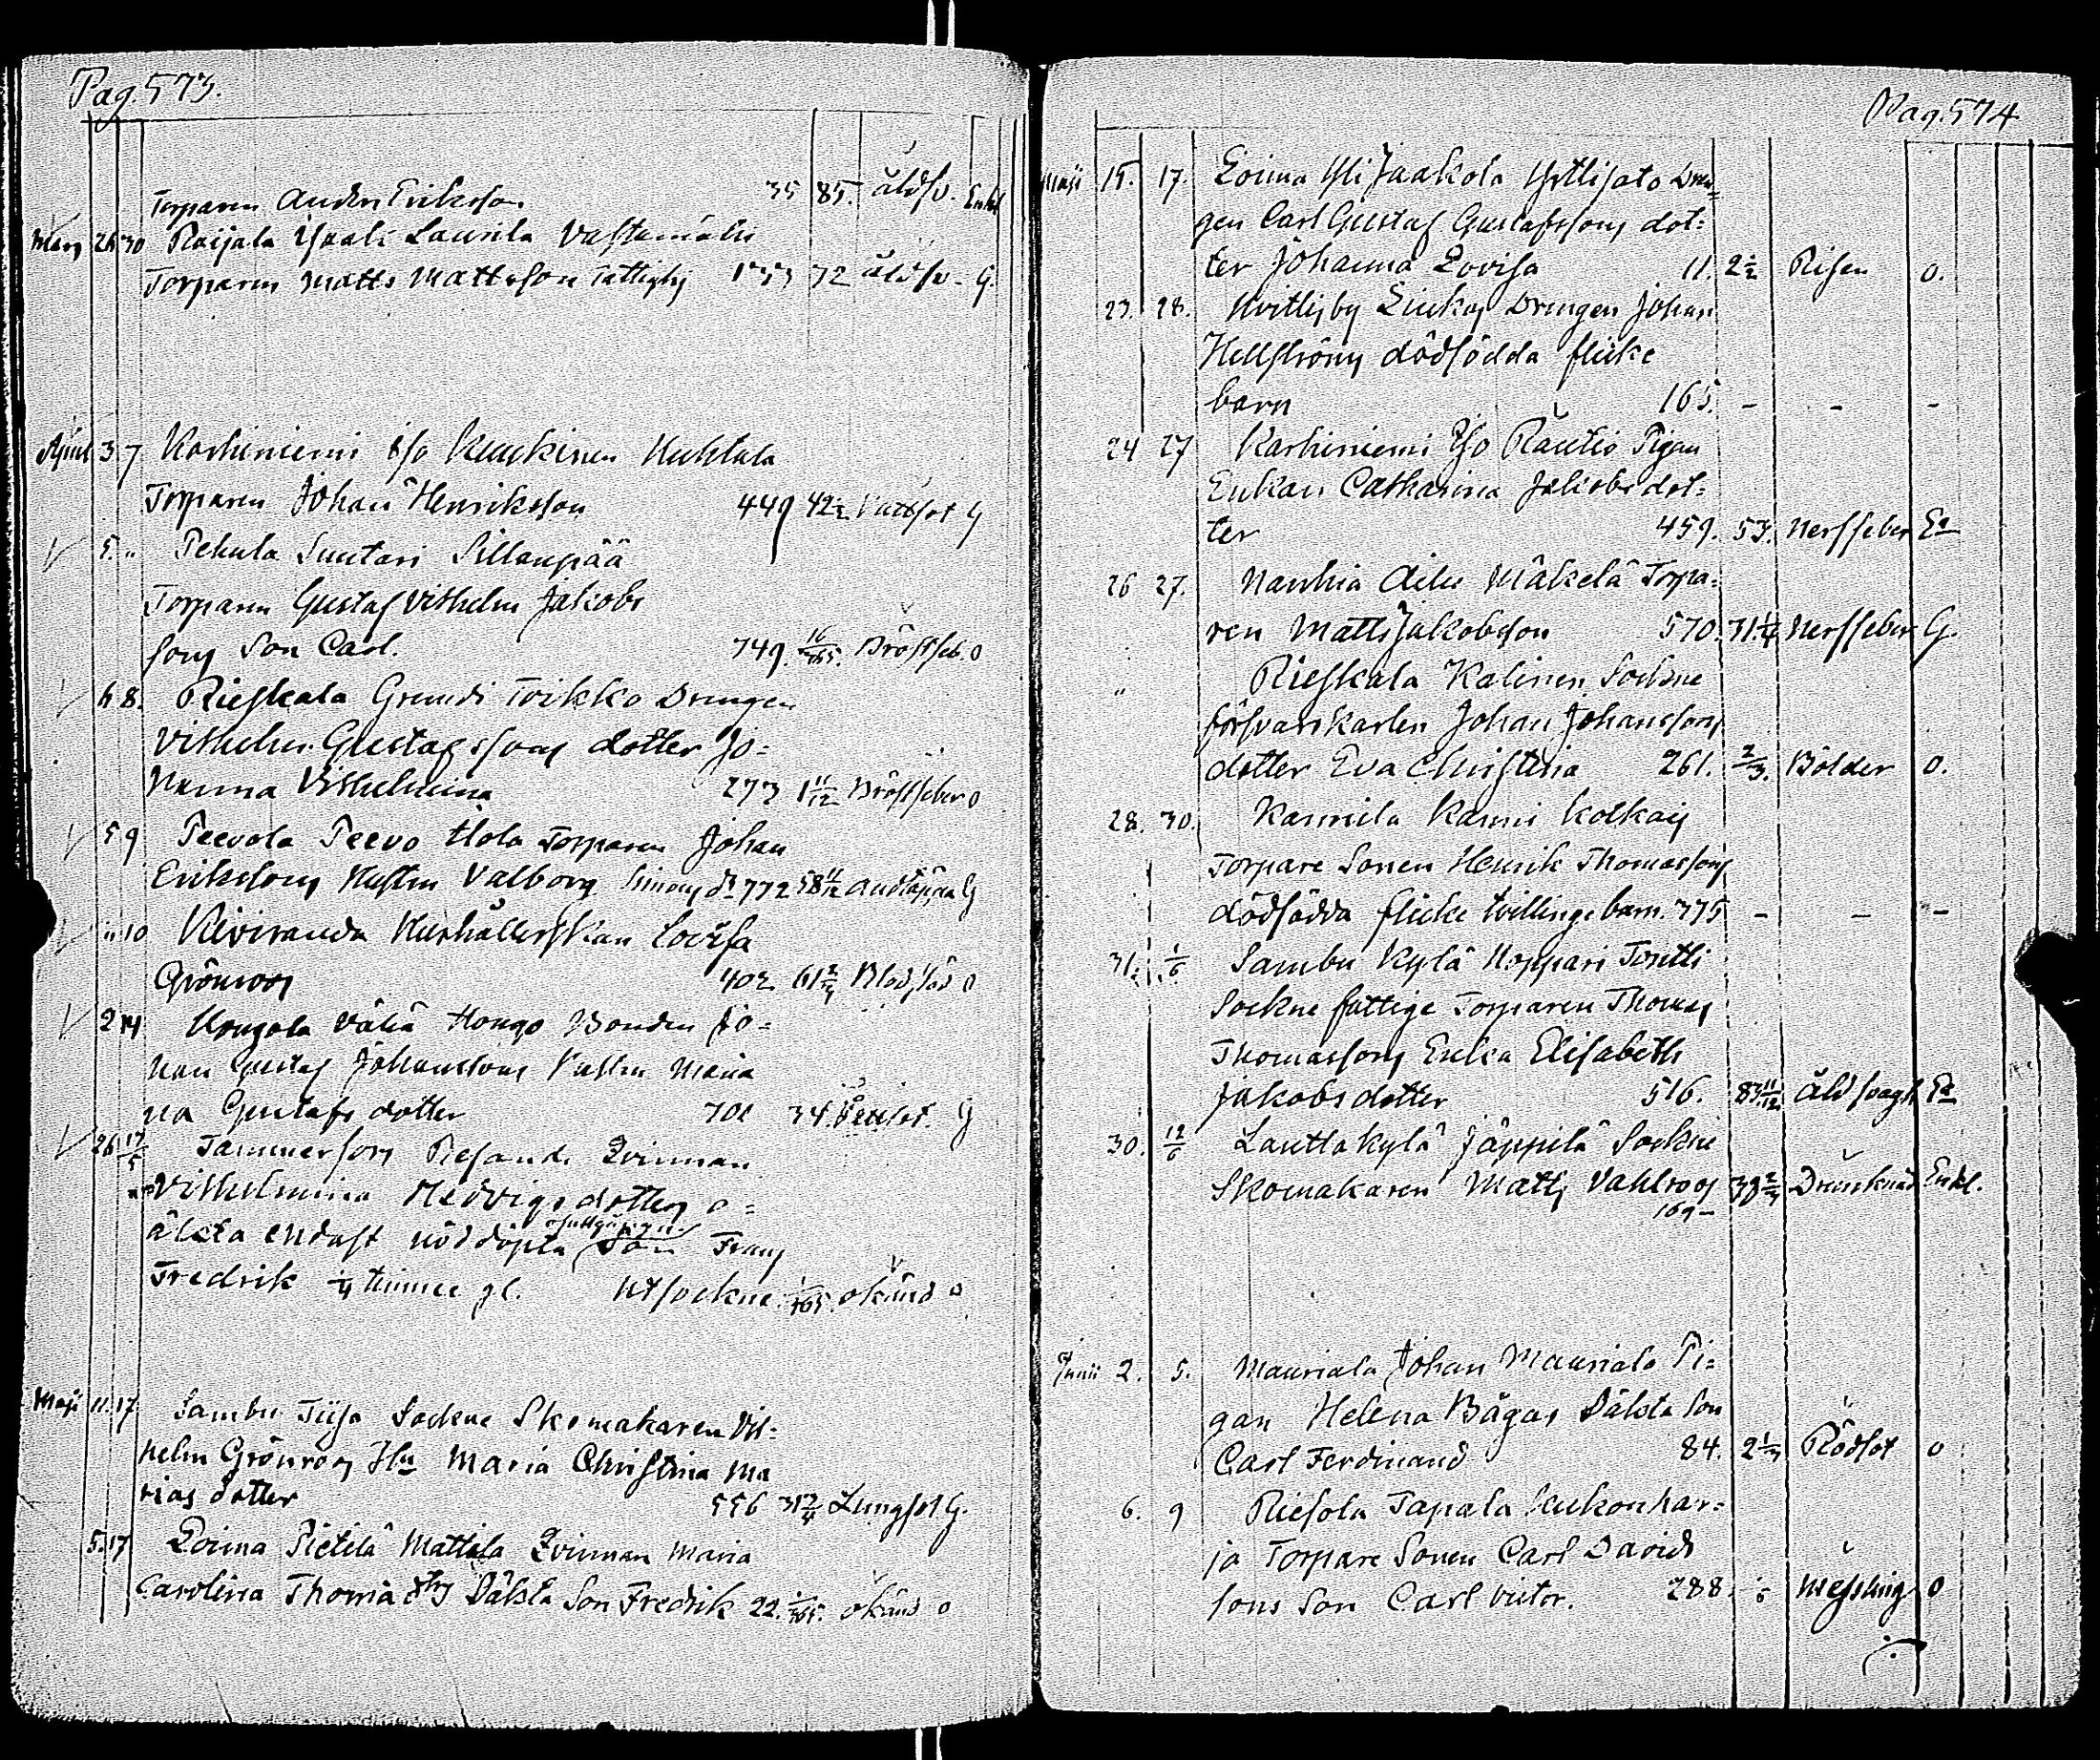 Pag. 573.
Torparen Anders Eriksson 35 85. åldsv. Enkl
Mars 26 30 Raijala Isaali Laurila Vastamäki
Torparen Matts Mattsson Fattighj 72 åldsv. G.
April 3 7 Karhiniemi Iso Kuukinen Huhtala
Torparen Johan Henriksson 449 42 1/2 Vattsot G
5. " Pehula Suutari Sillanpää
Torparen Gustaf Vilhelm Jakobs
sons Son Carl. 749. 16/365. Bröstfeb. o
8. Rieskala Grundi Toikko Drengen
Vilhelm Gustafssons dotter Jo=
hanna Vilhelmina 273 1 11/12 Bröstfeber o
5 9 Peevola Peevo Hola Torparen Johan
Erikssons Hustru Valborg Simons dr 772 58 11/12 Andtäppa G
" 10 Kiviranda Hushållerskan Lovisa
Grönroos 402 61 3/4 Blodslag o
2 14 Hongola Vähä Hongo Bonden Jo=
han Gustaf Johanssons Hustru Maria
na Gustafs dotter 701 34 G
26 17/5 Tammerfors Resande Qvinnan
Vilhelmina Hedvigsdotters o=
äkta endast nöddöpta Son Frans
Fredrik 1/4 timme gl. Utsockne 1/365. okänd o
Maji 11. 17 Sambu Tiiso Sockne Skomakaren Vil=
helm Grönroos Hu Maria Christina Ma
rias dotter 556 31 3/4 Lungsot G.
5. 17 Loima Pietilä Mattila Qvinnan Maria
Carolina Thomædtrs Oäkta Son Fredrik 22. 1/365. okänd o
Pag. 574
Maji 15. 17. Loima Yli Jaakola Yrttisato Dren=
gen Carl Gustaf Gustafssons dot=
ter Johanna Lovisa 11. 2 1/2 Risen o.
23. 28. Hvittisby Liukas Drengen Johan
Hellströms dödfödda flicke
barn 165. - - -
24 27 Karhiniemi Iso Rautio Pigan
Enkan Catharina Jakobs dot=
ter 459. 53. Nerffeber Ea
26 27. Nanhia Äiki Mäkelä Torpa=
ren Matts Jakobsson 570. 31 1/4 Nerffeber G.
" Rieskala Kalinen Sockne
försvarskarlen Johan Johanssons
dotter Eva Christina 261. 2/3. Bölder o.
28. 30. Karmila Karmi Kolkais
Torpare Sonen Henrik Thomassons
dödfödda flicke tvillingebarn. 375 - - -
31. 1/6 Sambu Kylä Hoppari Tontti
Sockne fattige Torparen Thomas
Thomassons Enka Elisabeth
Jakobsdotter 516. 83 11/12 Ea
30. 12/6 Lauttakylä Jäppilä Sockne
Skomakaren Matts Vahlroos 38 2/3 Drunknad Enkl.
169-
Junii 2. 5. Mauriala Johan Mauriala Pi=
gan Helena Bågas Oäkta Son
Carl Ferdinand 84. 2 1/3 Rödsot o
6. 9 Riesola Tapala Kukonhar=
ja Torpare Sonen Carl Davids
sons Son Carl Victor. 288. Messling o